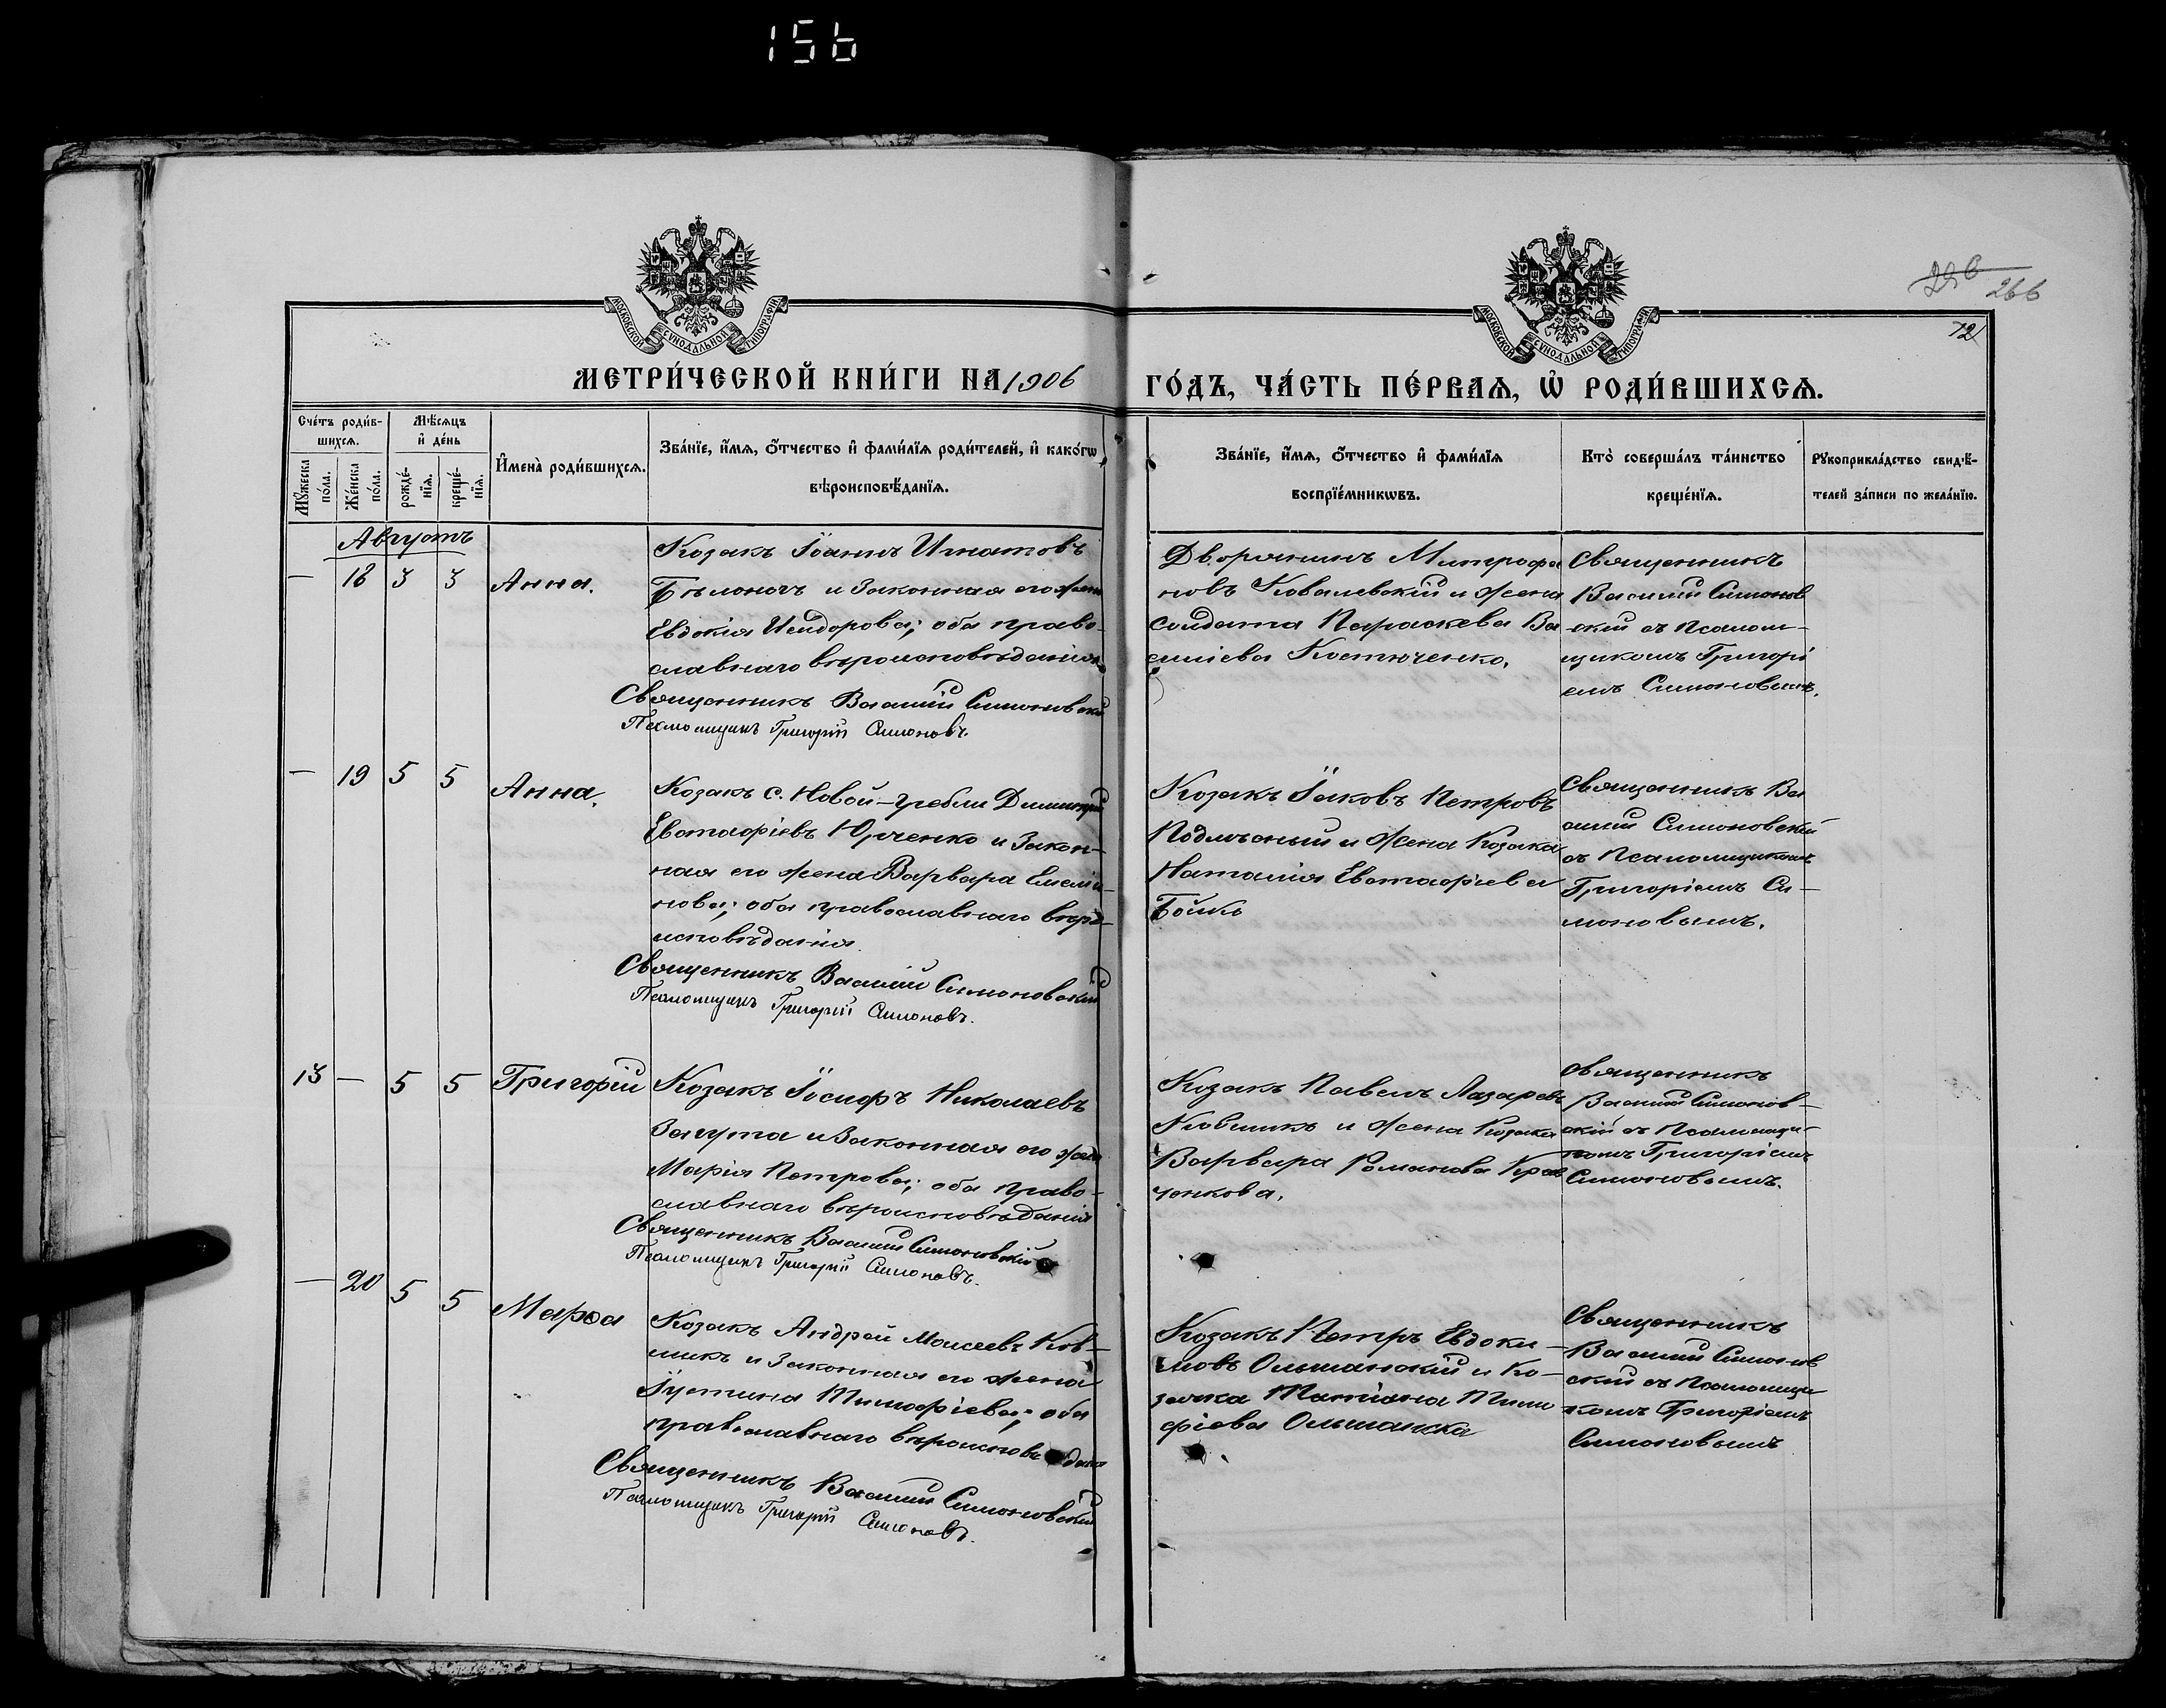 156
226
266
72
МОСКОВСКОЙ СѴНОДАЛЬНОЙ ТИПОГРАФІИ
МОСКОВСКОЙ СѴНОДАЛЬНОЙ ТИПОГРАФІИ
МЕТРИ́ЧЕСКОЙ КНИ́ГИ НА 1906 ГО́ДЪ, ЧА́СТЬ ПЕ́РВАѦ, Ѡ҆ РОДИ́ВШИХСѦ.
Сче́тъ роди́в-
шихсѧ.
Мѣ́сѧцъ
и҆ де́нь
Мꙋ́жеска
по́ла.
Же́нска
по́ла.
рожде́-
нїѧ.
креще́-
нїѧ.
И҆мена̀ роди́вшихсѧ.
Зва́нїе, и҆́мѧ, о҆́тчество и҆ фами́лїѧ роди́телей, и҆ како́гѡ
вѣроисповѣ́данїѧ.
Зва́нїе, и҆́мѧ, о҆́тчество и҆ фами́лїѧ
воспрїе́мникѡвъ.
Кто̀ соверша́лъ та́инство
креще́нїѧ.
Рꙋкоприкла́дство свидѣ́-
телей за́писи по жела́нїю.
Августъ
— 18 3 3 Анна.
Козакъ Іоаннъ Игнатовъ
Бѣлоногъ и законная его жена
Евдокія Исидорова; оба право-
славнаго вѣроисповѣданія
Священникъ Василій Симоновскій
Псаломщикъ Григорій Симоновъ.
Дворянинъ Митрофа
новъ Ковалевскій и жена
солдата Параскева Ва
силіева Костюченко.
Священникъ
Василій Симонов
скій съ псалом-
щикомъ Григорі
емъ Симоновымъ.
— 19 5 5 Анна.
Козакъ с. Новой-Гребли Димитрій
Евстафіевъ Юрченко и закон-
ная его жена Варвара Емелія-
нова; оба православнаго вѣро-
исповѣданія
Священникъ Василій Симоновскій
Псаломщикъ Григорій Симоновъ.
Козакъ Іаковъ Петровъ
Подлѣсный и жена козака
Наталія Евстафіева
Бойко
Священникъ Ва
силій Симоновскій
съ псаломщикомъ
Григоріемъ Си-
моновымъ.
13 — 5 5 Григорій
Козакъ Іосифъ Николаевъ
Загута и законная его жена
Марія Петрова; оба право-
славнаго вѣроисповѣданія
Священникъ Василій Симоновскій
Псаломщикъ Григорій Симоновъ.
Козакъ Павелъ Лазаревъ
Ковшикъ и жена козака
Варвара Романова Крав
ченкова.
Священникъ
Василій Симонов-
скій съ псаломщи-
комъ Григоріемъ
Симоновымъ.
— 20 5 5 Марѳа
Козакъ Андрей Моисеевъ Ков-
шикъ и законная его жена
Іустина Тимофіева; оба
православнаго вѣроисповѣданія
Священникъ Василій Симоновскій
Псаломщикъ Григорій Симоновъ.
Козакъ Петръ Евдоки-
мовъ Ольшанскій и ко-
зачка Татіана Тимо
фіева Ольшанска
Священникъ
Василій Симонов
скій съ псаломщи
комъ Григоріемъ
Симоновымъ